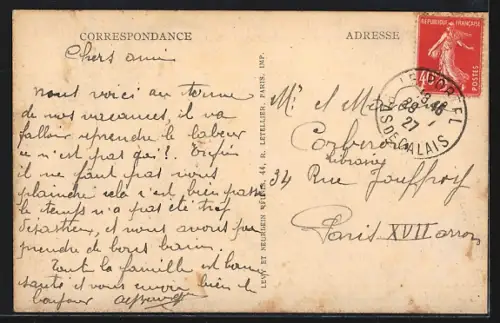 CORRESPONDANCE
ADRESSE
Chers amis
nous voici au terme
de nos vacances, il va
falloir reprendre le labeur
ce n'est pas gai! Enfin
il ne faut pas nous
plaindre cela s'est bien passé
le temps n'a pas été trop
désastreux, et nous avons pu
prendre de bons bains.
Tout la famille est bonne
santé et vous envoie bien le
bonjour
LEVY ET NEURDEIN RÉUNIS, 44, R. LETELLIER, PARIS, IMP.
RÉPUBLIQUE FRANÇAISE
POSTES
LE PORTEL
27
PAS DE CALAIS
Mr et Me
libraire
34 Rue Jouffroy
Paris XVII arron